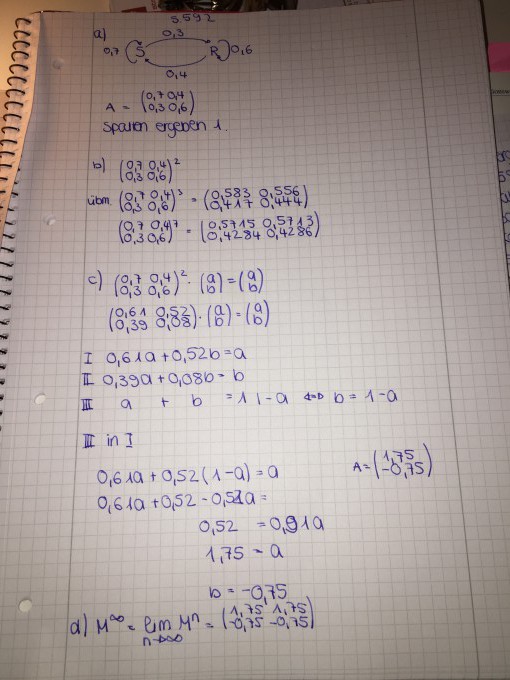 S.592
a)
0,3
0,7 S R 0,6
0,4
A = (0,7 0,4
0,3 0,6)
Spalten ergeben 1.
b) (0,7 0,4
0,3 0,6)²
übm. (0,7 0,4
0,3 0,6)³ = (0,583 0,556
0,417 0,444)
(0,7 0,4
0,3 0,6)⁷ = (0,5715 0,5713
0,4284 0,4286)
c) (0,7 0,4
0,3 0,6)² · (a
b) = (a
b)
(0,61 0,52
0,39 0,08) · (a
b) = (a
b)
I 0,61a + 0,52b = a
II 0,39a + 0,08b = b
III a + b = 1 | -a <=> b = 1-a
III in I
0,61a + 0,52(1-a) = a
A = (1,75
-0,75)
0,61a + 0,52 - 0,52a =
0,52 = 0,91a
1,75 = a
b = -0,75
d) M^∞ = lim Mⁿ = (1,75 1,75
n→∞ -0,75 -0,75)